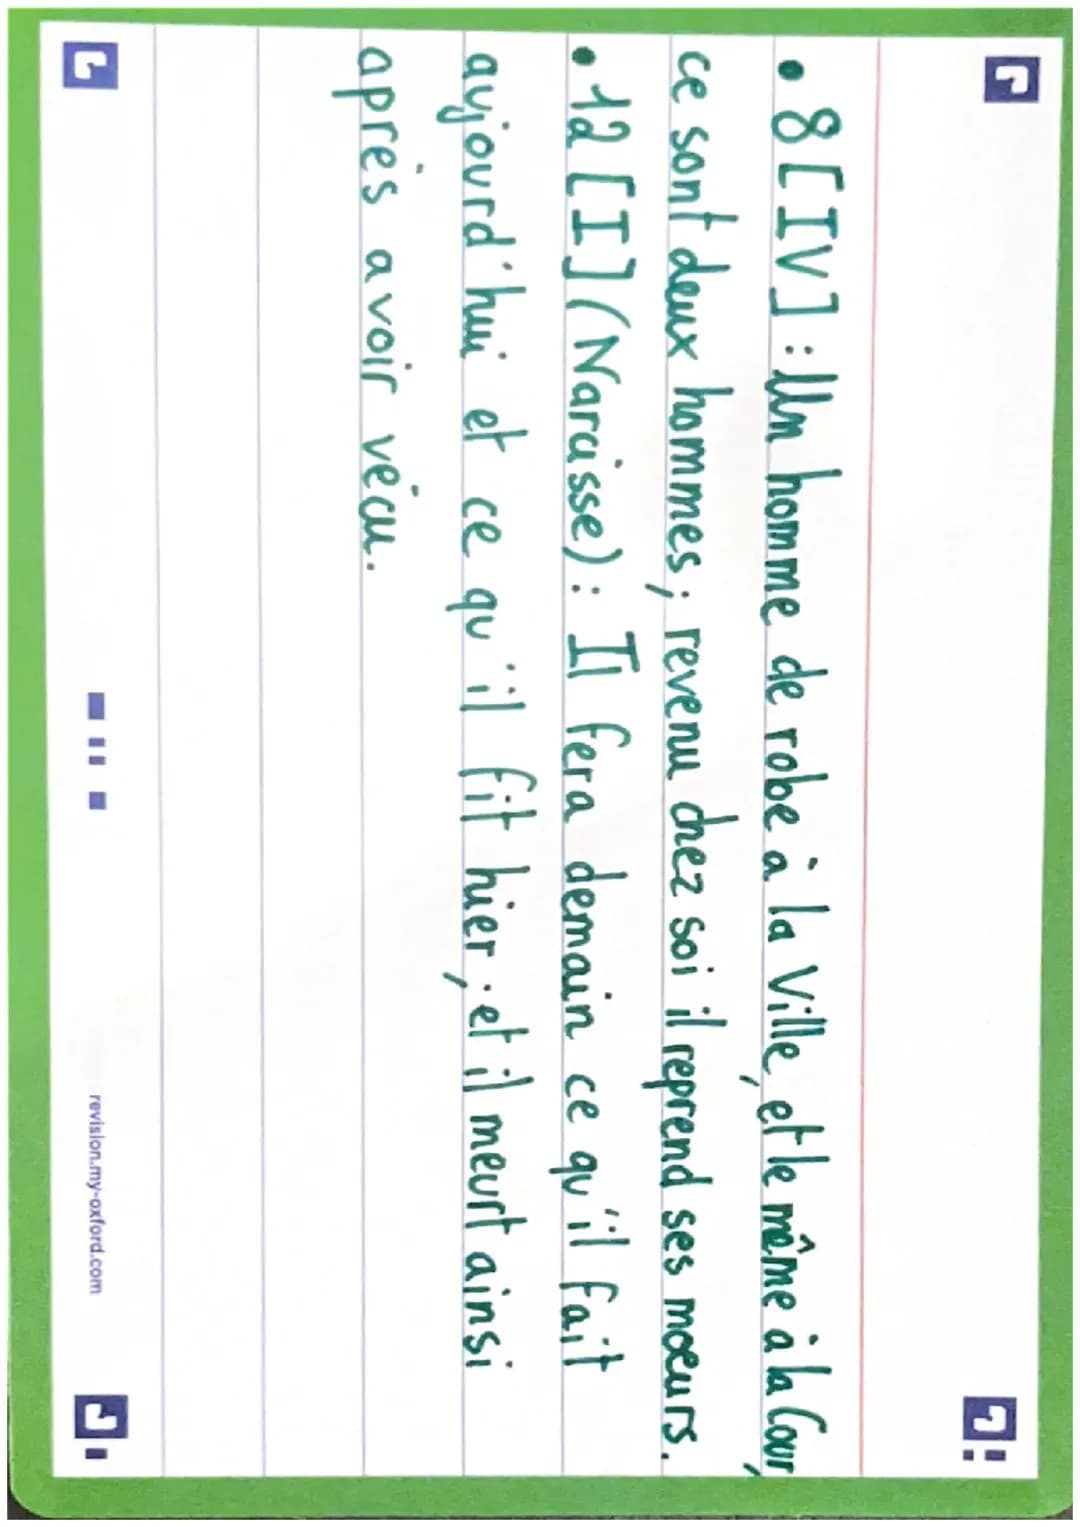 • 8 [IV] : Un homme de robe à la Ville, et le même à la Cour,
ce sont deux hommes ; revenu chez soi il reprend ses moeurs.
• 12 [I] (Narcisse) : Il fera demain ce qu'il fait
aujourd'hui et ce qu'il fit hier ; et il meurt ainsi
après avoir vécu.
revision.my-oxford.com